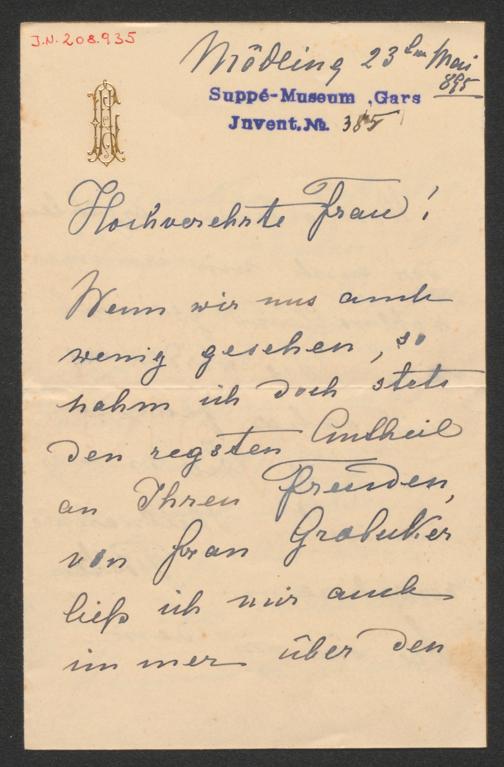 J.N. 208.935
Mödling 23ten Mai
895
Suppé-Museum, Gars
Invent.No. 385
Hochverehrte Frau!
Wenn wir uns auch
wenig gesehen, so
nahm ich doch stets
den regsten Antheil
an Ihren Freuden,
von Frau Grobecker
ließ ich mir auch
immer über den